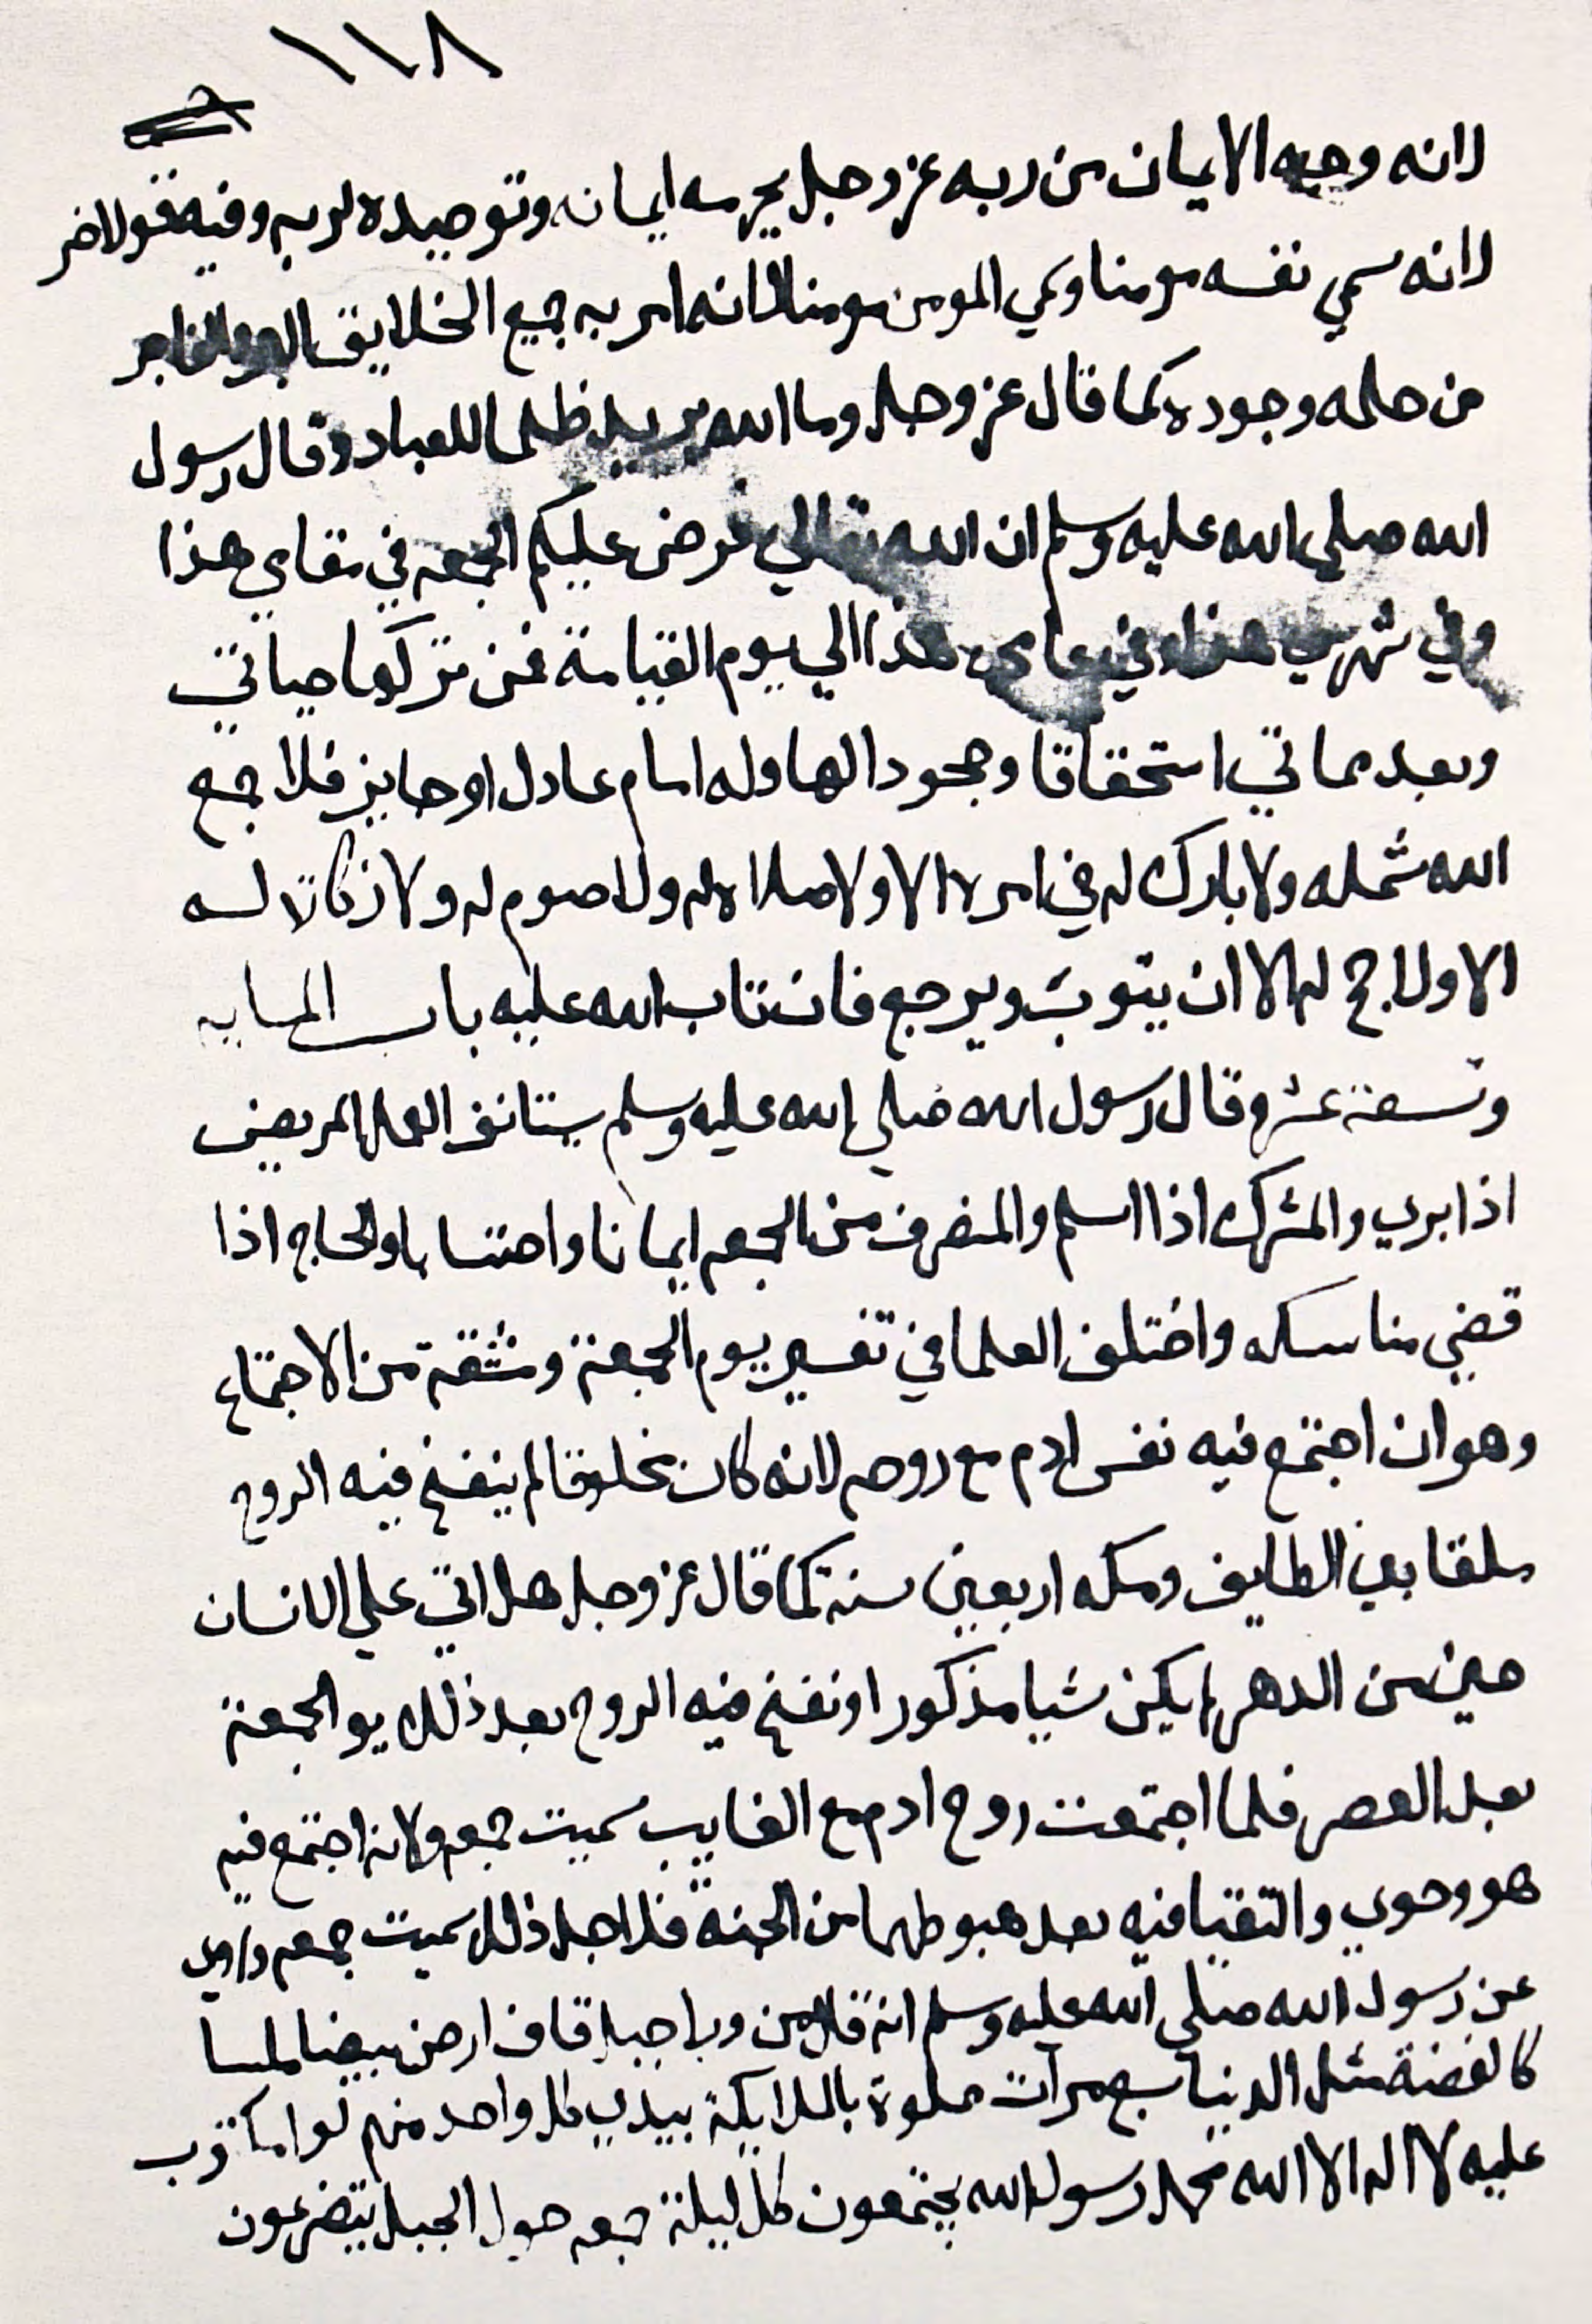 ١١٨
لانه وجبه الايمان من ربه عز وجل يحرسه ايمانه وتوحيده لربه وفيه قول اخر
لانه سمي نفسه مومنا وسمي المومن مومنا لانه امر به جميع الخلايق البر والفاجر
من حلمه وجوده كما قال عز وجل وما الله يريد ظلما للعباد وقال رسول
الله صلي الله عليه وسلم ان الله تعالي فرض عليكم الجمعه في مقامي هذا
وفي شهري هذا وفي عامي هذا الي يوم القيامة فمن تركها حياتي
وبعد مماتي استحقاقا وجحودا لها وله امام عادل او جايز فلا جمع
الله شمله ولا بارك له في امره الا ولا صلاة له ولا صوم له ولا زكاة له
الا ولا حج له الا ان يتوب ويرجع فان تاب تاب الله عليه باب المايه
وتسعة عشر وقال رسول الله صلي الله عليه وسلم يستانف العمل المريض
اذا بري والمشرك اذا اسلم والمنصرف من الجمعه ايمانا واحتسابا والحاج اذا
قضي مناسكه واختلف العلما في تفسير يوم الجمعة ومشقة من الاجتماع
وهو ان اجتمع فيه نفس ادم مع روحه لانه كان مخلوقا لم ينفخ فيه الروح
ملقا بين الطايف ومكه اربعين سنة كما قال عز وجل هل اتي علي الانسان
حين من الدهر لم يكن شيا مذكورا ونفخ فيه الروح بعد ذلك يو الجمعة
بعد العصر فلما اجتمعت روح ادم مع الغايب سميت جمعه ولانه اجتمع فيه
هو وحوي والتقيا فيه بعد هبوطهما من الجنة فلاجل ذلك سميت جمعه وروي
عن رسول الله صلي الله عليه وسلم انه قال من ورا جبل قاف ارض بيضا ملسا
كالفضة مثل الدنيا سبع مرات مملوة بالملايكة بيدي كل واحد منهم لوا مكتوب
عليه لا اله الا الله محمد رسول الله يجتمعون كل ليلة جمعه حول الجبل يتضرعون